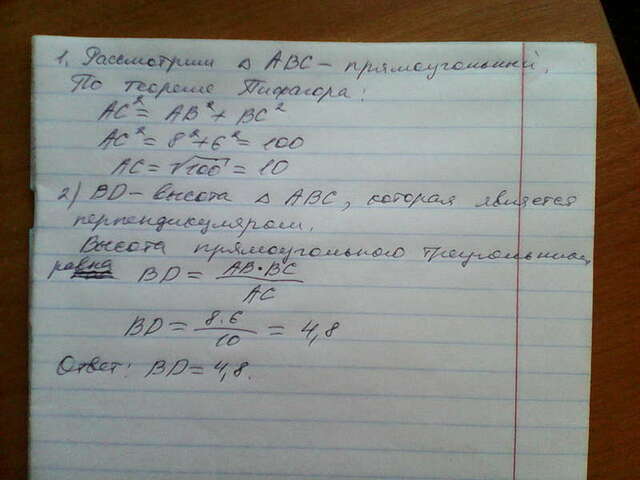 1. Рассмотрим △ ABC – прямоугольный.
По теореме Пифагора:
AC² = AB² + BC²
AC² = 8² + 6² = 100
AC = √100 = 10
2) BD – высота △ ABC, которая является
перпендикуляром.
Высота прямоугольного треугольника
равна BD = AB·BC / AC
BD = 8·6 / 10 = 4,8
Ответ: BD = 4,8.